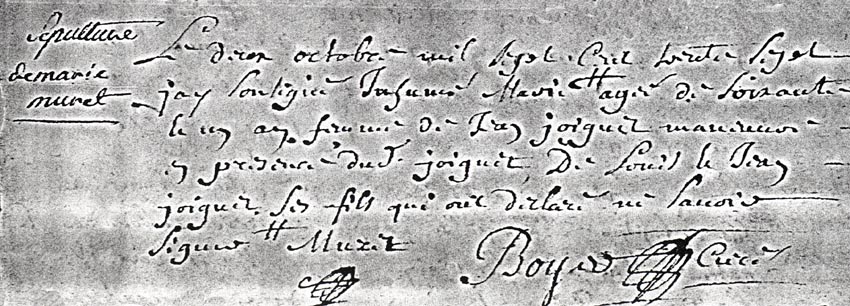 Sepulture
de marie
muret
Le deux octobre mil sept cent trente sept
jay soubsigné Inhumé Marie # agée de soixante
et un an femme de Jean joignet manœuvre
en presence dud. joignet, De Louis et Jean
joignet ses fils qui ont declaré ne savoir
signer # Muret
Boyer Curé